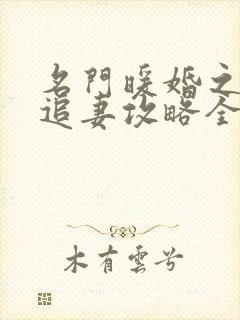 名門暖婚之
追妻攻略全
木有雲兮